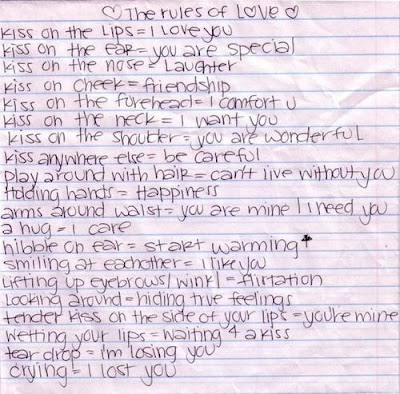 ♡ The rules of Love ♡
kiss on the Lips = I Love you
kiss on the ear = you are special
kiss on the nose = Laughter
kiss on cheek = friendship
kiss on the forehead = I comfort u
kiss on the neck = I want you
kiss on the shoulder = you are wonderful
kiss anywhere else = be careful
play around with hair = can't live without you
Holding hands = Happiness
arms around waist = you are mine / I need you
a hug = I care
nibble on ear = start warming ↑
smiling at eachother = I like you
Lifting up eyebrows / wink / = flirtation
Looking around = hiding true feelings
tender kiss on the side of your lips = you're mine
wetting your lips = waiting 4 a kiss
tear drop = I'm losing you
crying = I lost you